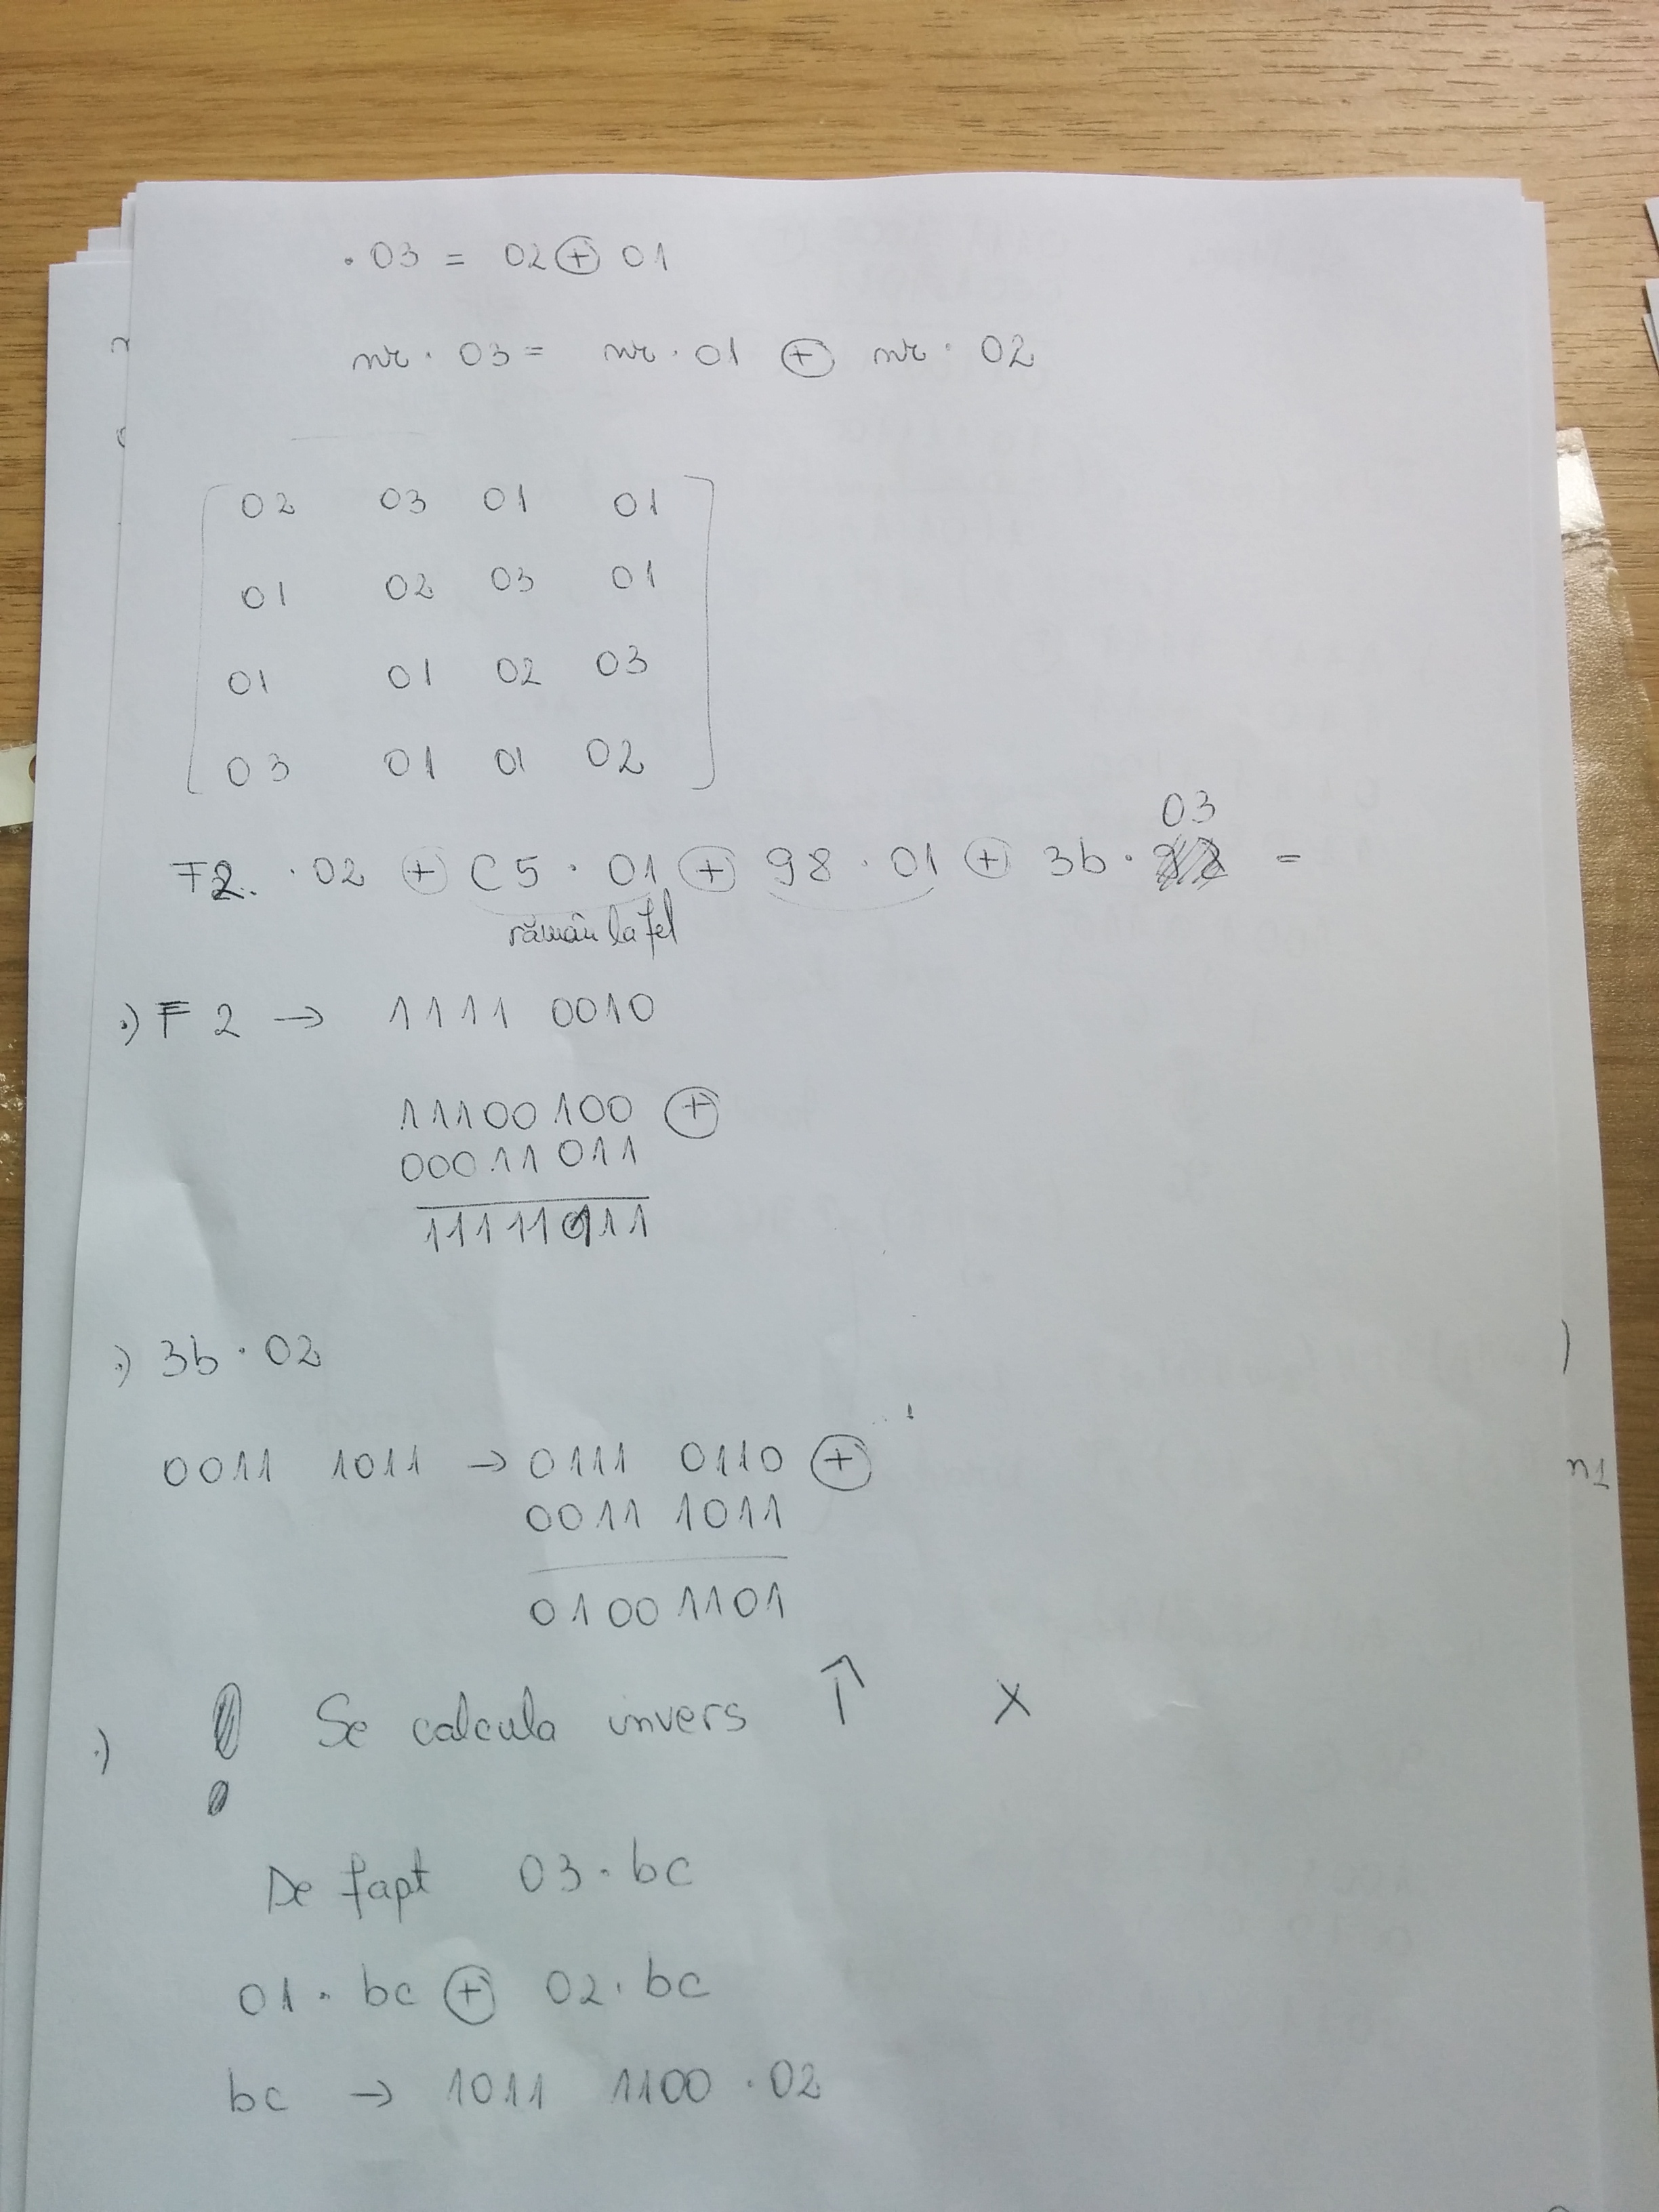 · 03 = 02 ⊕ 01
nr · 03 = nr · 01 ⊕ nr · 02
02 03 01 01
01 02 03 01
01 01 02 03
03 01 01 02
03
F2 · 02 ⊕ C5 · 01 ⊕ 98 · 01 ⊕ 3b · =
rămân la fel
·) F2 → 1111 0010
11100100 ⊕
00011011
11111111
·) 3b · 02
0011 1011 → 0111 0110 ⊕
0011 1011
0100 1101
·) ! Se calcula invers ↑ X
De fapt 03 · bc
01 · bc ⊕ 02 · bc
bc → 1011 1100 · 02
n1